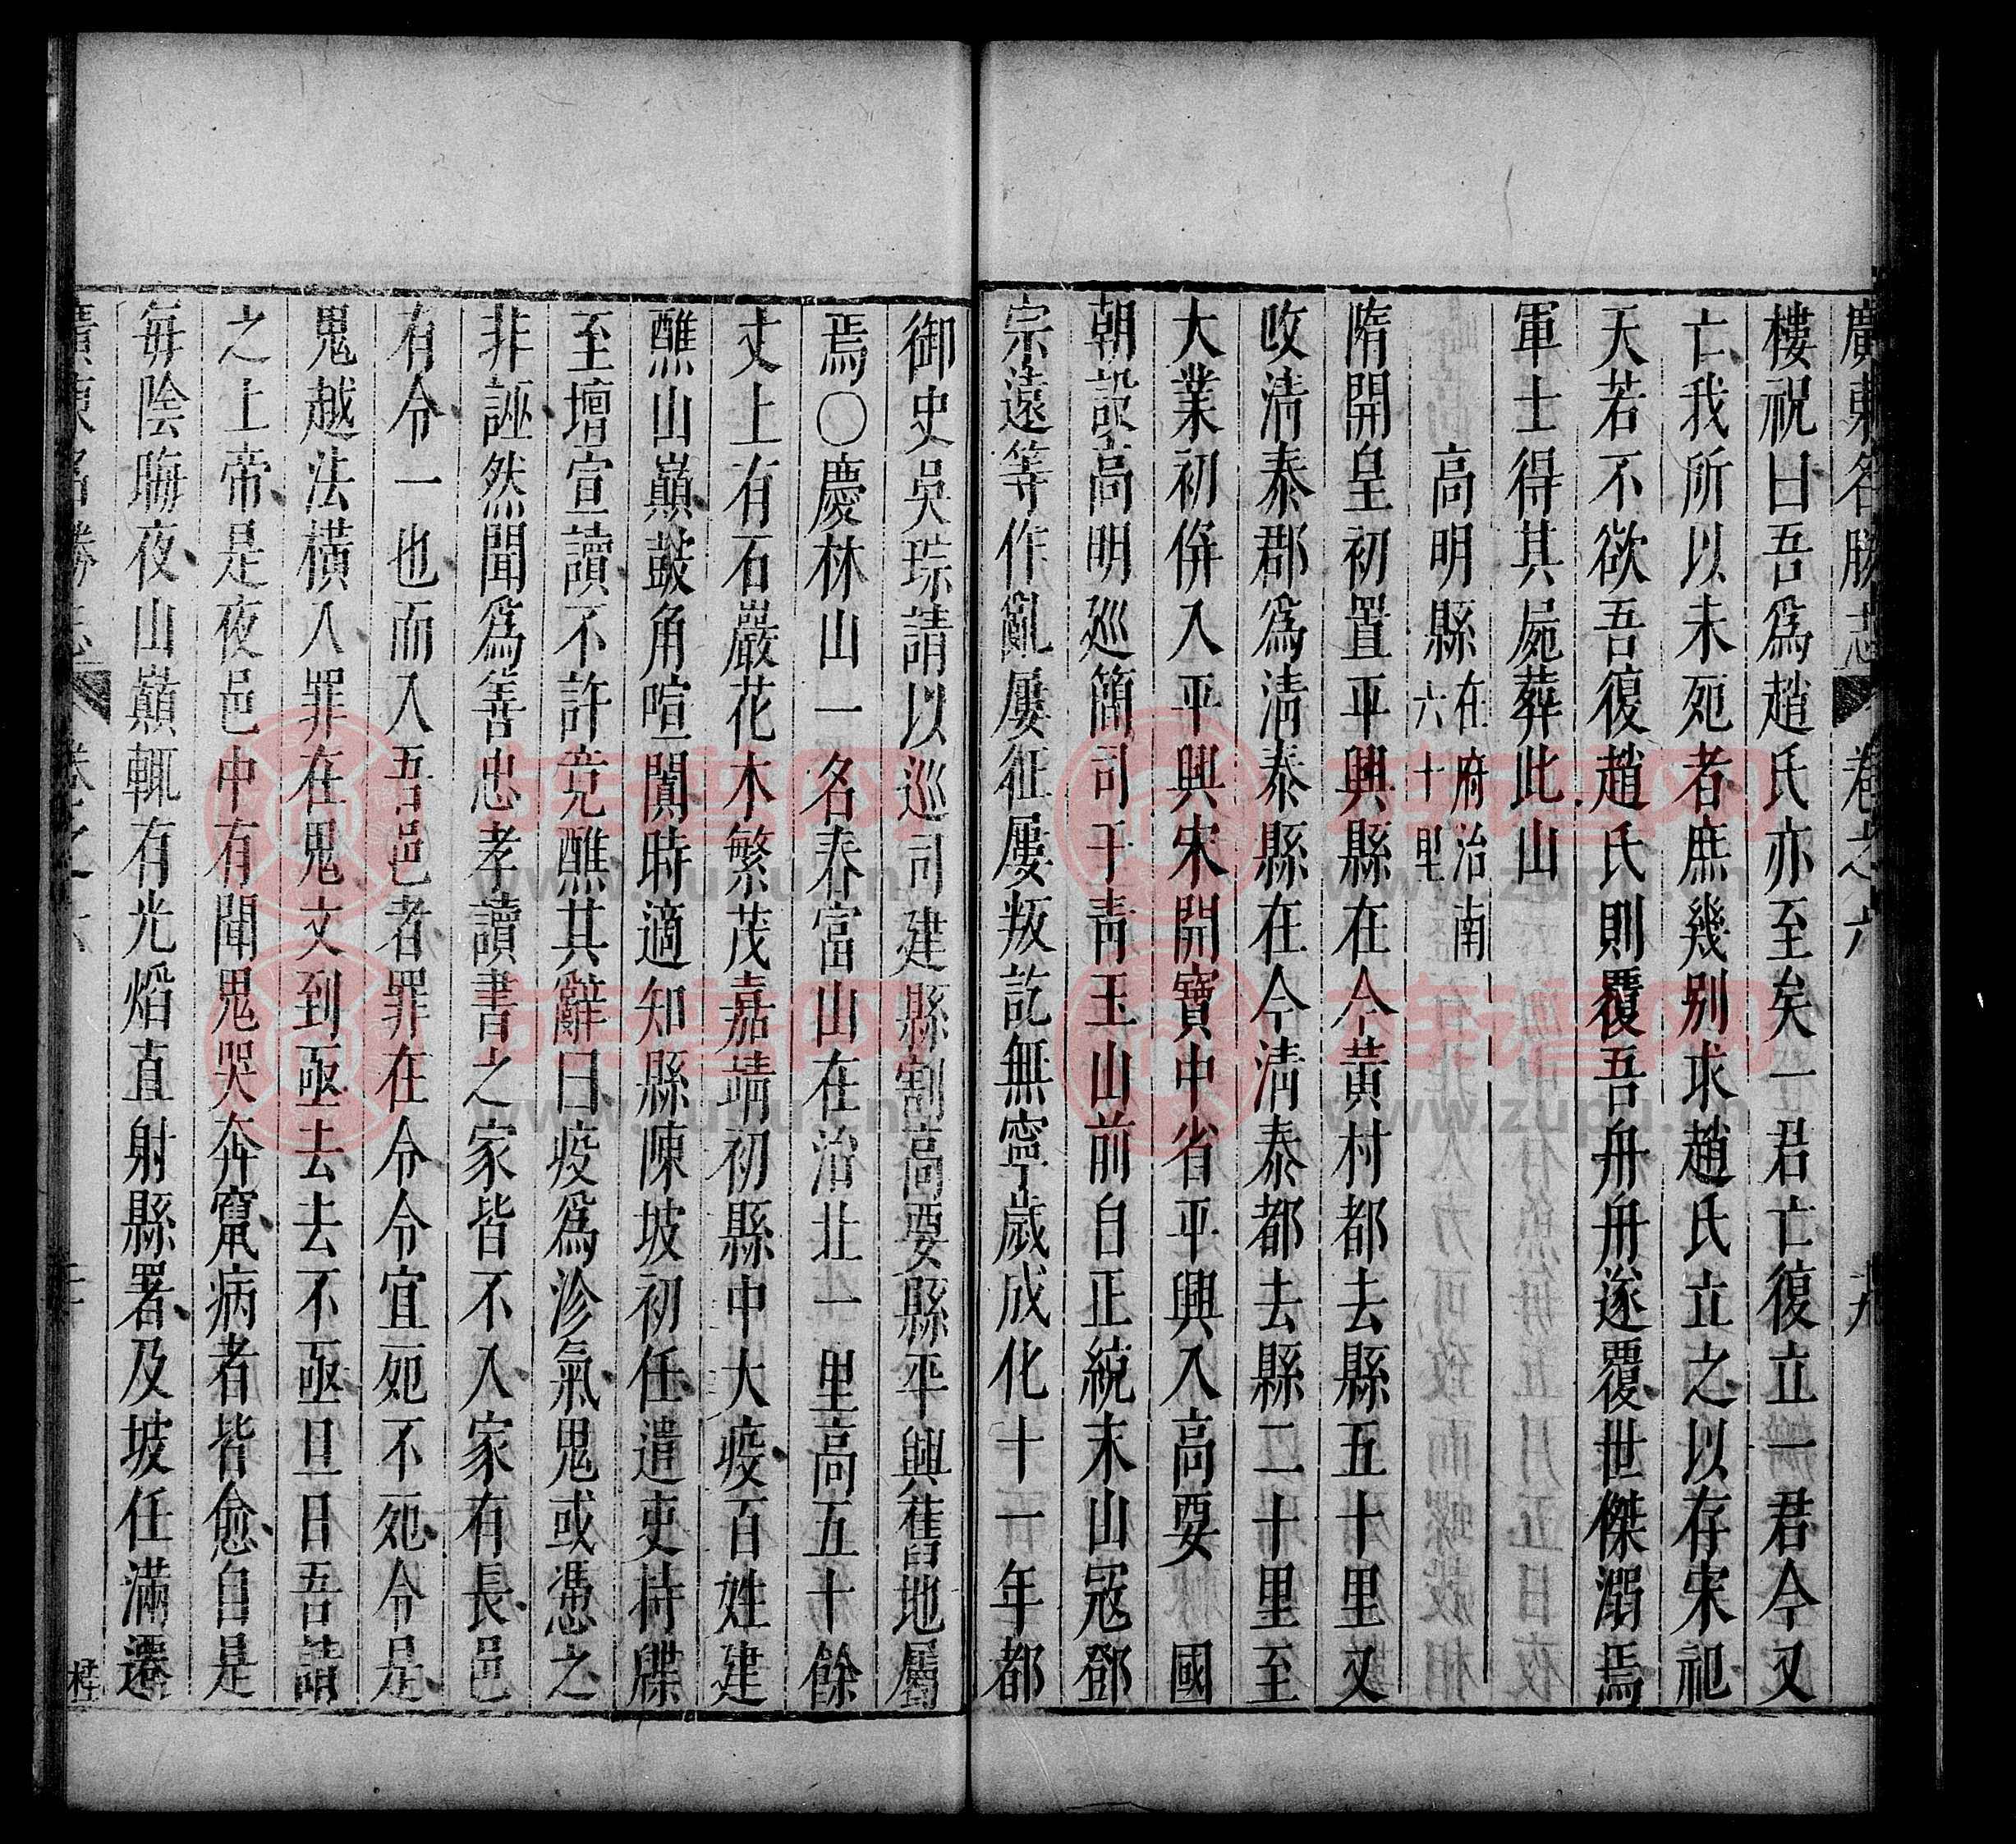 廣東名勝志 卷之六 十九
樓祝曰吾爲趙氏亦至矣一君亡復立一君今又
亡我所以未死者庶幾別求趙氏立之以存宋祀
天若不欲吾復趙氏則覆吾舟舟遂覆世傑溺焉
軍士得其屍葬此山
高明縣在府治南六十里
隋開皇初置平興縣在今黃村都去縣五十里又
改清泰郡爲清泰縣在今清泰都去縣二十里至
大業初併入平興宋開寶中省平興入高要 國
朝設高明巡簡司于青玉山前自正統末山寇鄧
宗遠等作亂屢征屢叛訖無寧歲成化十一年都
御史吳琮請以巡司建縣割高要縣平興舊地屬
焉○慶林山一名春富山在治北一里高五十餘
丈上有石巖花木繁茂嘉靖初縣中大疫百姓建
醮山巔鼓角喧闐時適知縣陳坡初任遣吏持牒
至壇宣讀不許竟醮其辭曰疫爲沴氣鬼或憑之
非誣然聞爲善忠孝讀書之家皆不入家有長邑
有令一也而入吾邑者罪在令令宜死不死令是
鬼越法橫入罪在鬼文到亟去去不亟旦日吾請
之上帝是夜邑中有聞鬼哭奔竄病者皆愈自是
每陰晦夜山巔輒有光熖直射縣署及坡任滿遷
廣東名勝志 卷之六
www.zupu.cn
www.zupu.cn
www.zupu.cn
www.zupu.cn